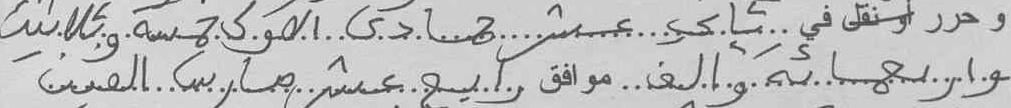 و حرر او نقل في .. ثاني .. عشر .... جمادى .. الاولى خمسة وثلاثين
و اربعمائة و ألف .. موافق رابع عشر .. مارس .. الفين